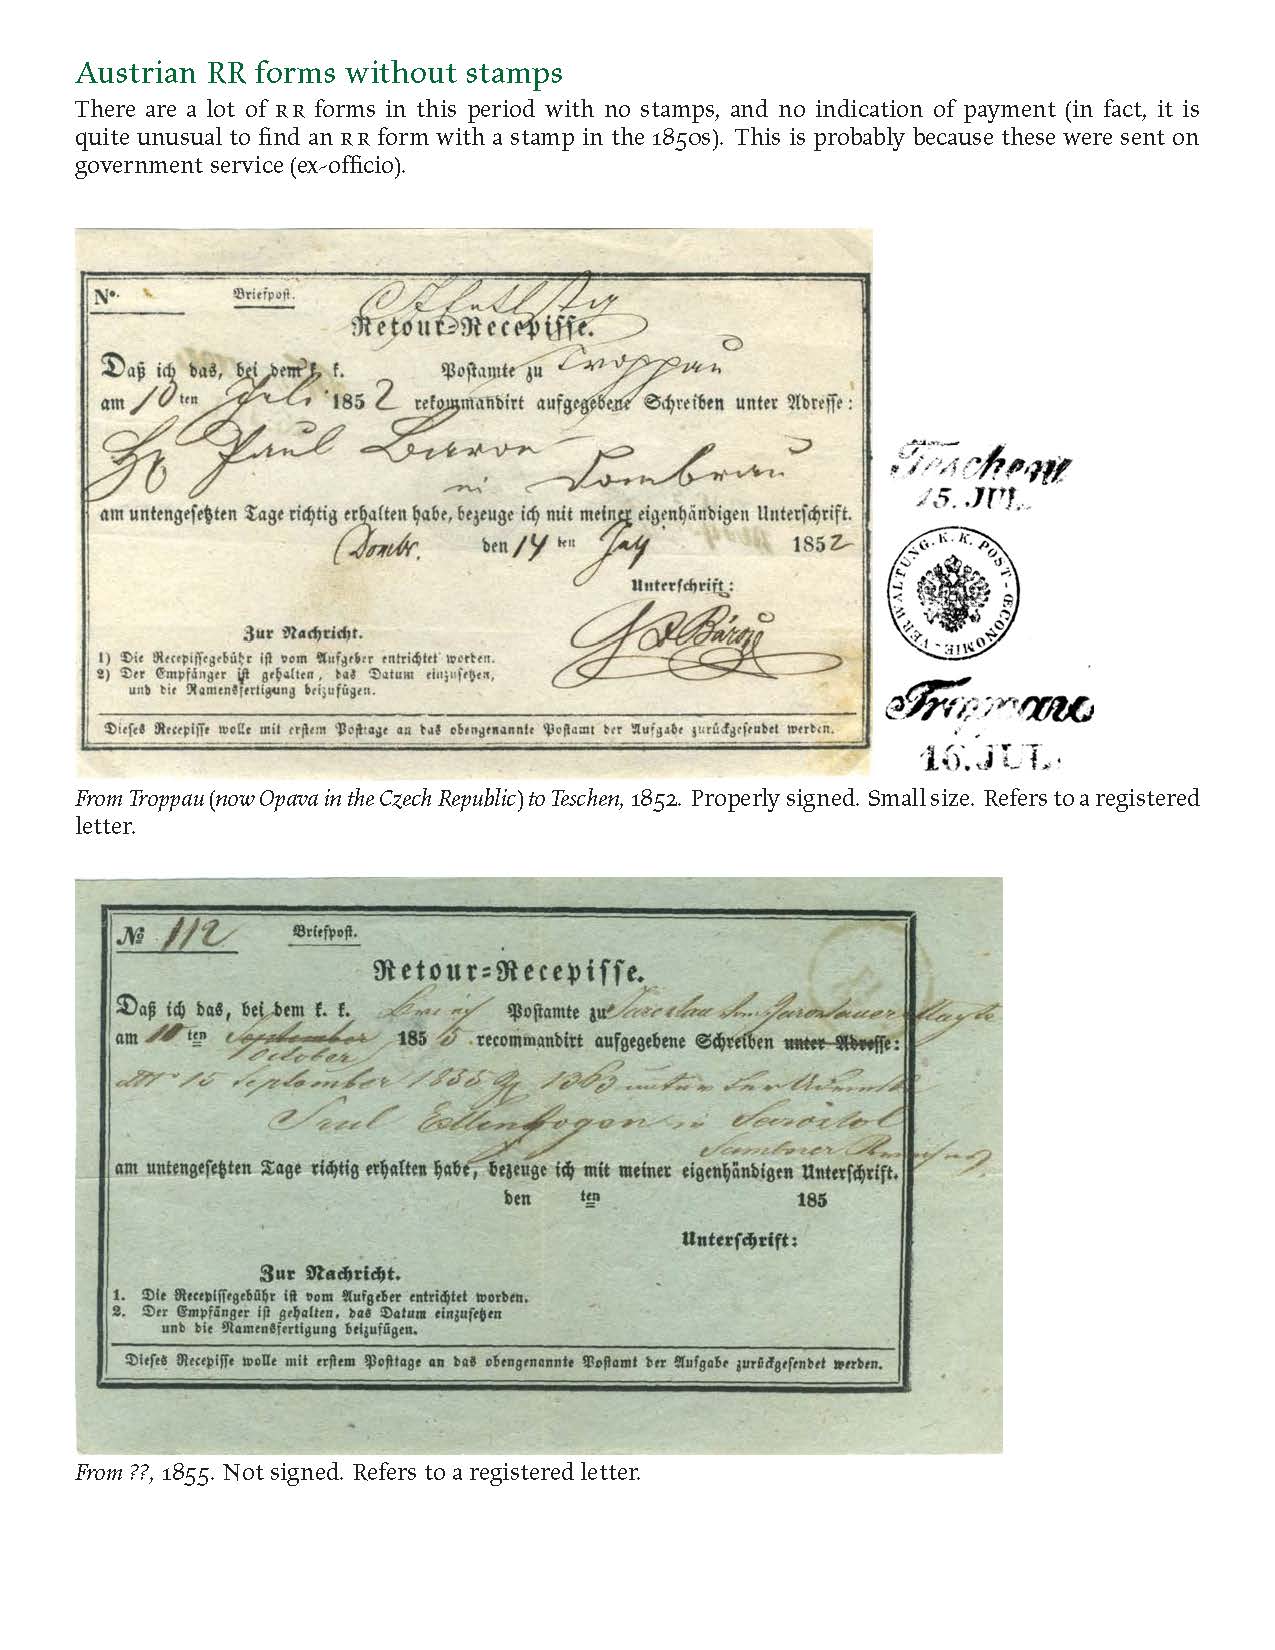 Austrian RR forms without stamps
There are a lot of RR forms in this period with no stamps, and no indication of payment (in fact, it is
quite unusual to find an RR form with a stamp in the 1850s). This is probably because these were sent on
government service (ex-officio).
No. Briefpost.
Retour=Recepisse.
Daß ich das, bei dem k. k. Postamte zu Troppau
am 10ten Juli 1852 rekommandirt aufgegebene Schreiben unter Adresse:
Paul Baron
in Dombrau
am untengesetzten Tage richtig erhalten habe, bezeuge ich mit meiner eigenhändigen Unterschrift.
Dombr. den 14ten July 1852
Unterschrift:
Zur Nachricht.
1) Die Recepissegebühr ist vom Aufgeber entrichtet worden.
2) Der Empfänger ist gehalten, das Datum einzusetzen,
und die Namensfertigung beizufügen.
Dieses Recepisse wolle mit erstem Posttage an das obengenannte Postamt der Aufgabe zurückgesendet werden.
Teschen
15. JUL.
VERWALTUNG. K. K. POST-ŒCONOMIE-
Troppau
16. JUL.
From Troppau (now Opava in the Czech Republic) to Teschen, 1852. Properly signed. Small size. Refers to a registered
letter.
No 112 Briefpost.
Retour=Recepisse.
Daß ich das, bei dem k. k. Postamte zu Jaroslau
am 10ten September 1855 recommandirt aufgegebene Schreiben unter Adresse:
October
15 September 1855 1363
am untengesetzten Tage richtig erhalten habe, bezeuge ich mit meiner eigenhändigen Unterschrift.
den ten 185
Unterschrift:
Zur Nachricht.
1. Die Recepissegebühr ist vom Aufgeber entrichtet worden.
2. Der Empfänger ist gehalten, das Datum einzusetzen
und die Namensfertigung beizufügen.
Dieses Recepisse wolle mit erstem Posttage an das obengenannte Postamt der Aufgabe zurückgesendet werden.
From ??, 1855. Not signed. Refers to a registered letter.